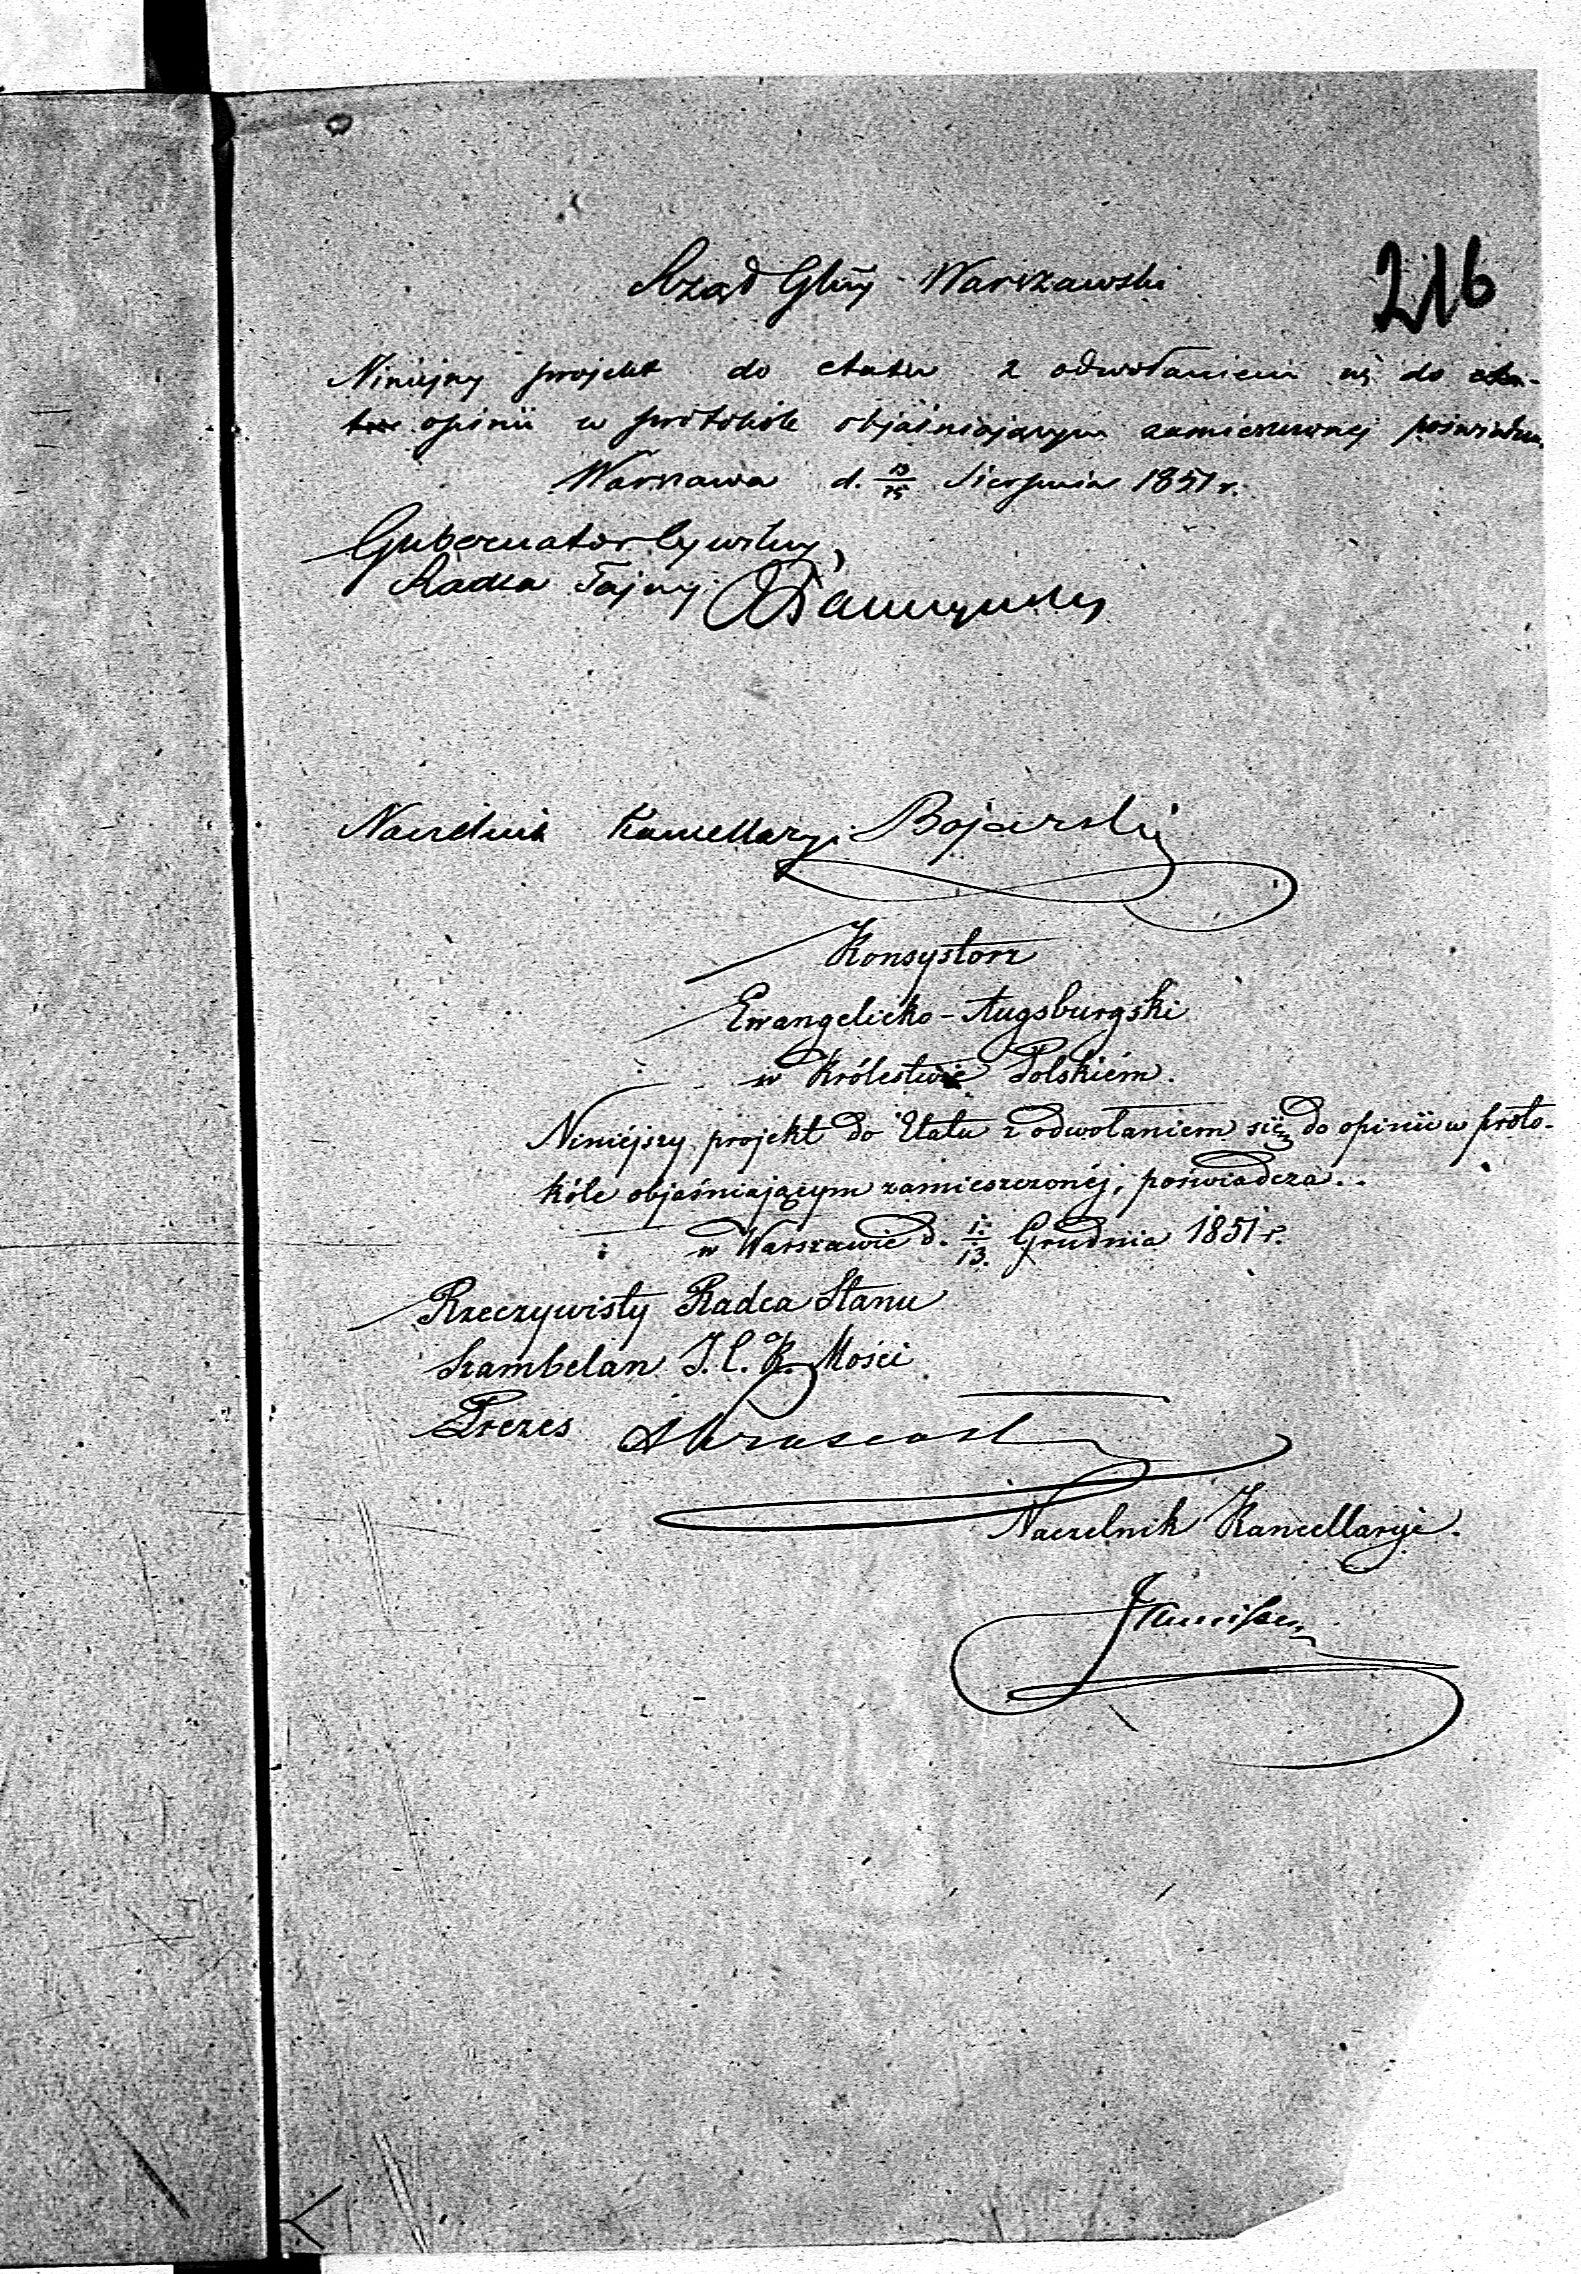 216
Rząd Gbny Warszawski
Niniejszy projekt do etatu z odwołaniem się do
opinii w protokóle objaśniającym zamieszczonej poświadcza
Warszawa d. Sierpnia 1851 r.
Gubernator Cywilny,
Radca Tajny
Naczelnik Kancellaryi Bojarski
Konsystorz
Ewangelicko-Augsburgski
w Królestwie Polskiém.
Niniéjszy projekt do Etatu z odwołaniem się do opinii w proto-
kóle objaśniającym zamieszczonéj, poświadcza.
w Warszawie d. 1/13. Grudnia 1851 r.
Rzeczywisty Radca Stanu
Szambelan J. C. K. Mości
Prezes
Naczelnik Kancellaryi.